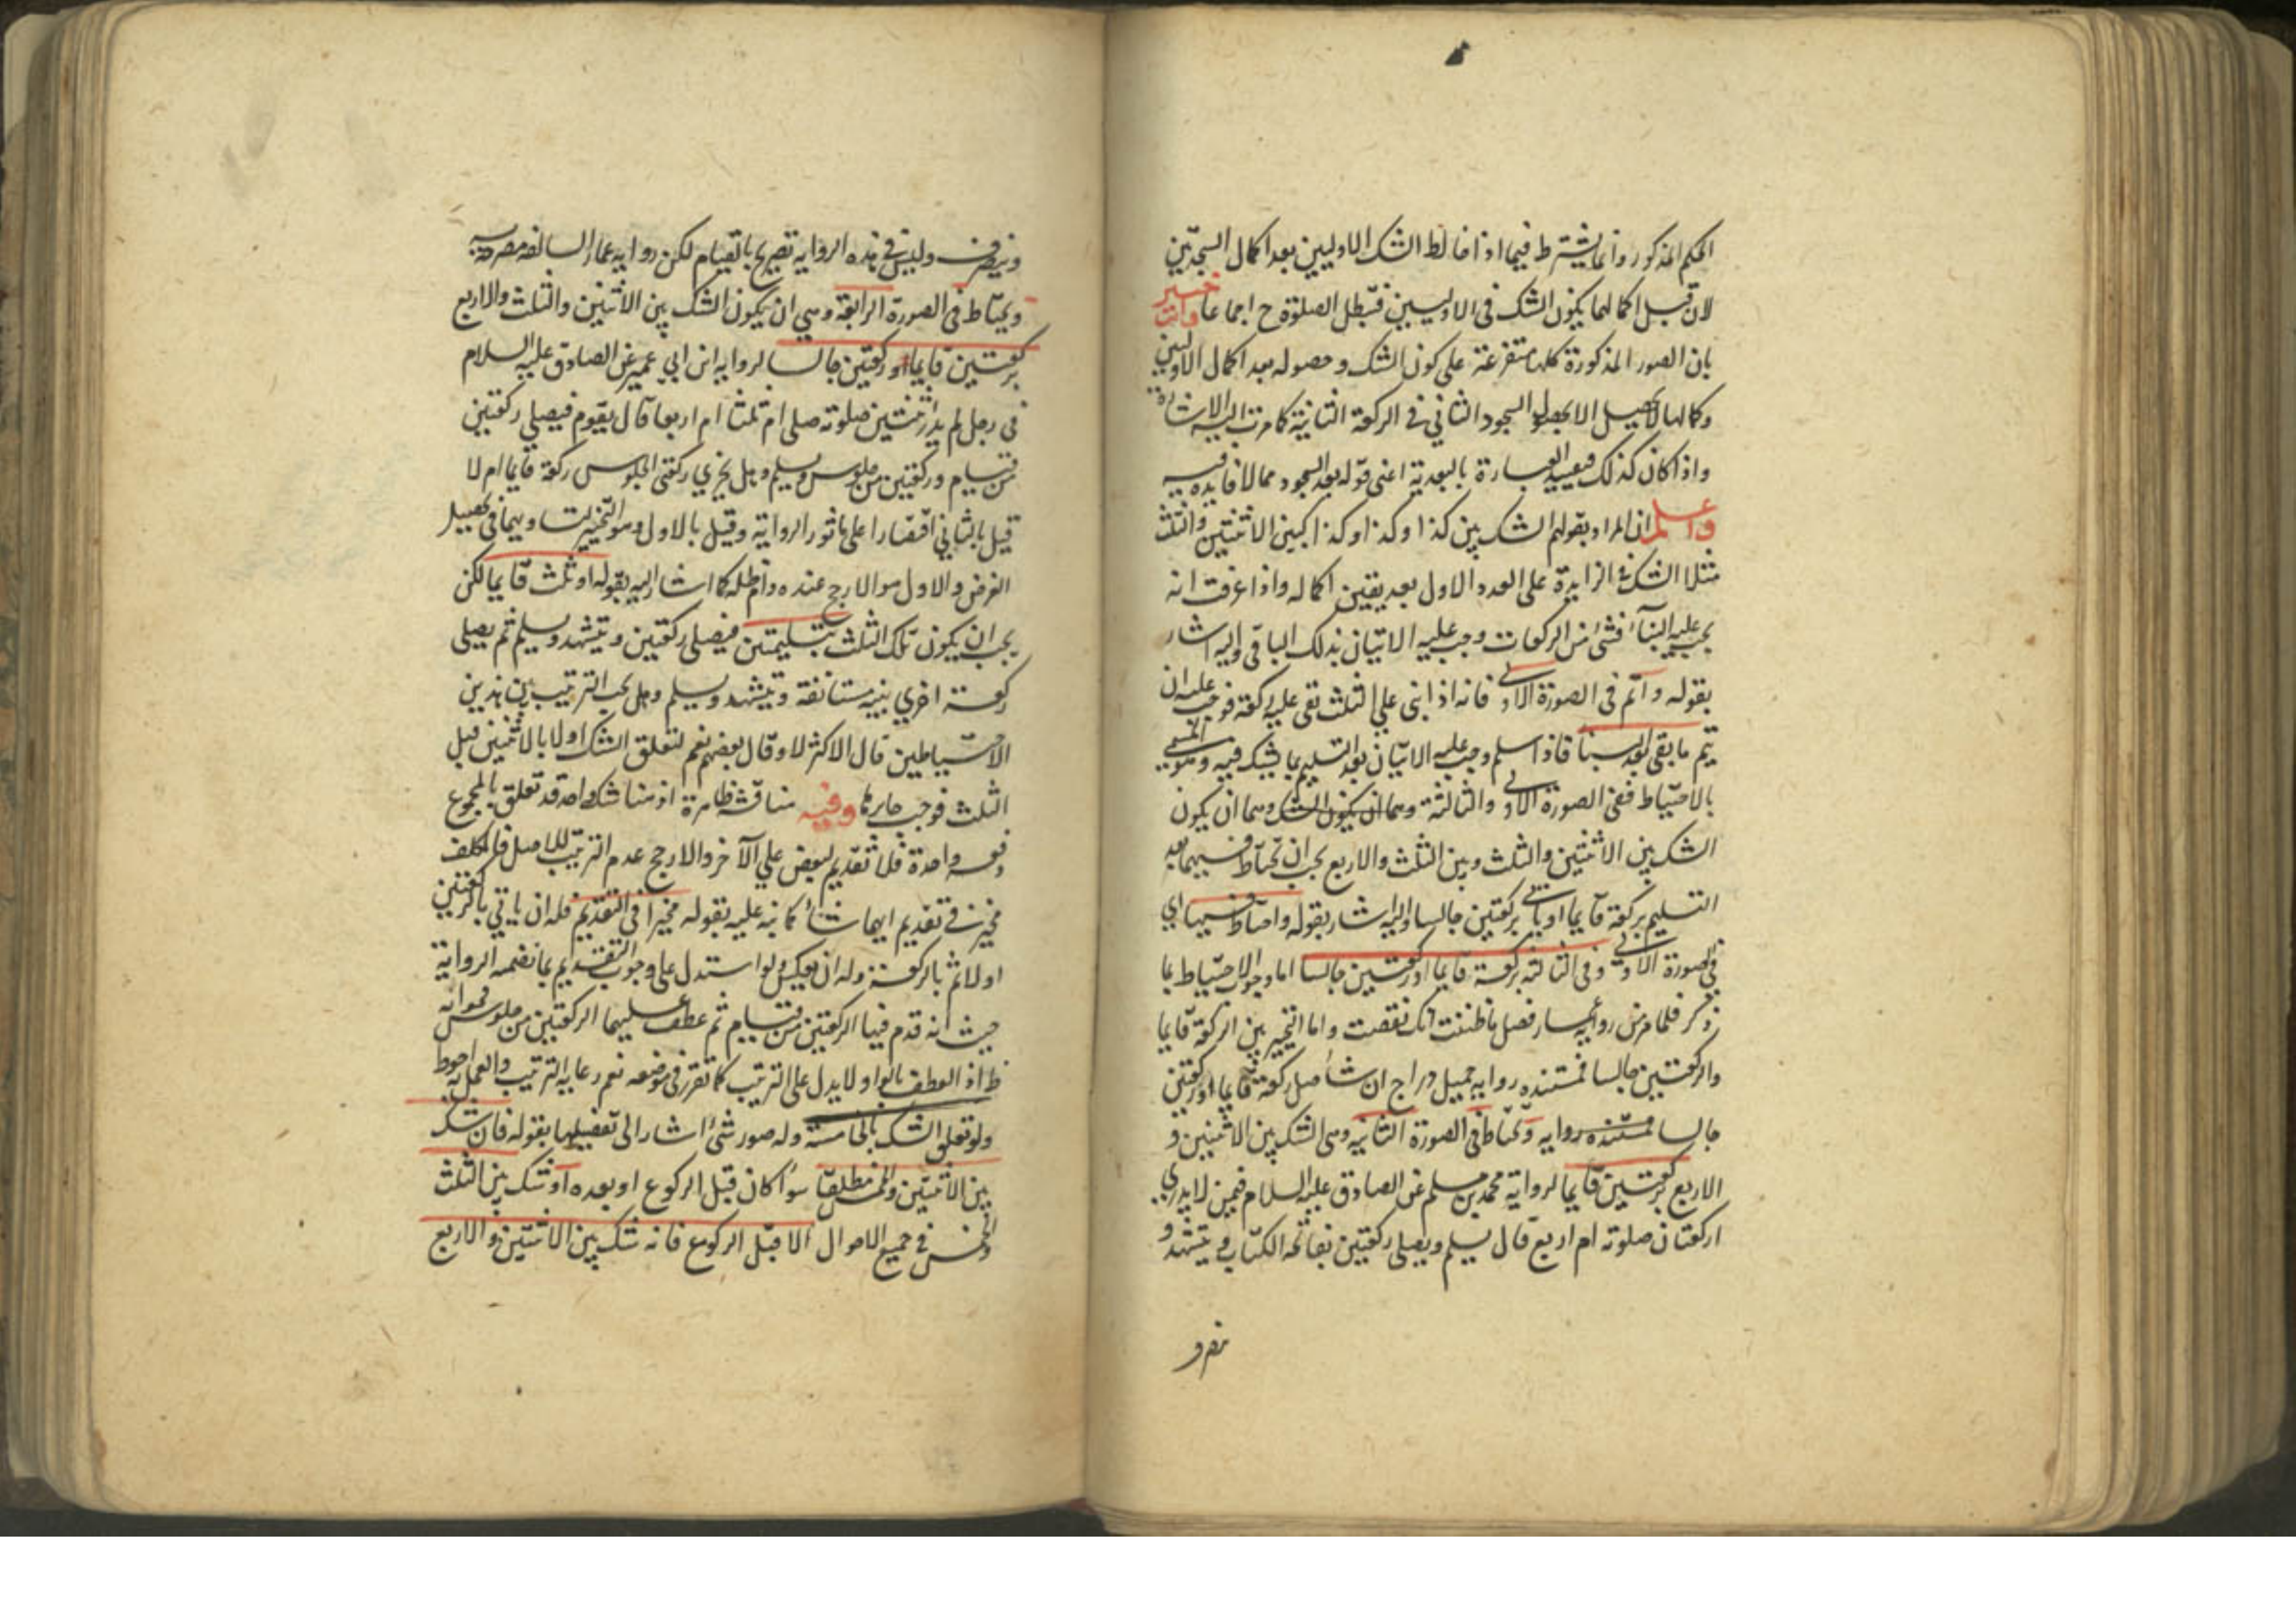 الحكم المذكور وانما يشترط فيما اذا خالط الشك الاوليين بعد اكمال السجدتين
لان قبل اكمالهما يكون الشك فى الاوليين فتبطل الصلوة ح اجماعا وانت خبير
بان الصور المذكورة كلها متفرعة على كون الشك وحصوله بعد اكمال الاوليين
وكمالها لا يحصل الا بحصول السجود الثاني في الركعة الثانية كما مرت اليه الاشارة
واذا كان كذلك فتقييد العبارة بالبعدية اعنى قوله بعد السجود مما لا فايدة فيه
واعلم ان المراد بقولهم الشك بين كذا وكذا وكذا كبين الاثنتين والثلث
مثلا الشك في الزايدة على العدد الاول بعد يقين اكماله واذا عرفت انه
يجب عليه البناء فشئ من الركعات وجب عليه الاتيان بذلك الباقى واليه اشار
بقوله واتم فى الصورة الاولى فانه اذا بنى علي الثلث بقى عليه ركعة فوجب عليه ان
يتم ما بقى بعد البنا فاذا سلم وجب عليه الاتيان بعد التسليم بما يشك فيه وهو المسمى
بالاحتياط ففى الصورة الاولى والثالثة وهما ان يكون الشك وهما ان يكون
الشك بين الاثنتين والثلث وبين الثلث والاربع يجب ان يحتاط فيهما بعد
التسليم بركعة قايما او ياتى بركعتين جالسا واليه اشار بقوله واحتاط فيها اي
في الصورة الاولى وفى الثالثة بركعة قايما او ركعتين جالسا اما وجوب الاحتياط بما
ذكر فلما مر من رواية عمار فصل ما ظننت انك نقصت واما التخيير بين الركعة قايما
والركعتين جالسا فمستنده رواية جميل دراج ان شا صل ركعة قايما او ركعتين
جالسا مستنده رواية ويحتاط فى الصورة الثانيه وهى الشك بين الاثنين و
الاربع بركعتين قايما لرواية محمد بن مسلم عن الصادق عليه السلام فيمن لا يدري
اركعتان صلوته ام اربع قال يسلم ويصلى ركعتين بفاتحة الكتاب ويتشهد و
ينصرف
وينصرف وليس في هذه الرواية تصريح بالقيام لكن رواية عمار السالفة مصرحة به
ويحتاط فى الصورة الرابعة وهي ان يكون الشك بين الاثنين والثلث والاربع
بركعتين قايما وركعتين جالسا لرواية ابن ابي عمير عن الصادق عليه السلام
فى رجل لم يدر اثنتين صلوته صلى ام ثلثا ام اربعا قال يقوم فيصلي ركعتين
من قيام وركعتين من جلوس ويسلم وهل يجزي ركعتى الجلوس ركعة قايما ام لا
قيل بالثاني اقتصارا على ماثور الرواية وقيل بالاول وهو التخيير لتساويهما فى تحصيل
الغرض والاول هو الارجح عنده دام ظله كما اشار اليه بقوله او ثلث قايما لكن
يجب ان يكون تلك الثلث بتسليمتين فيصلى ركعتين ويتشهد ويسلم ثم يصلى
ركعة اخري بنية مستانفة ويتشهد ويسلم وهل يجب الترتيب بين هذين
الاحتياطين قال الاكثر لا وقال بعضهم نعم لتعلق الشك اولا بالاثنين قبل
الثلث فوجب جابرها وفيه مناقشة ظاهرة اذ هنا شك واحد قد تعلق بالمجموع
دفعة واحدة فلا تقديم لبعض علي الآخر والارجح عدم الترتيب للاصل فالمكلف
مخير في تقديم ايهما شاء كما نبه عليه بقوله مخيرا فى التقديم فله ان ياتي بالركعتين
اولا ثم بالركعة وله ان يعكس ولو استدل على وجوب التقديم بما تضمنه الرواية
حيث انه قدم فيها الركعتين من قيام ثم عطف عليهما الركعتين من جلوس فجوابه
ظ اذ العطف بالواو لا يدل على الترتيب كما تقرر فى موضعه نعم رعاية الترتيب والعمل به احوط
ولو تعلق الشك بالخامسة وله صور شئ اشار الى تفصيلها بقوله فان شك
بين الاثنتين والخمس مطلقا سواء كان قبل الركوع او بعده او شك بين الثلث
والخمس في جميع الاحوال الا قبل الركوع فانه شك بين الاثنتين والاربع